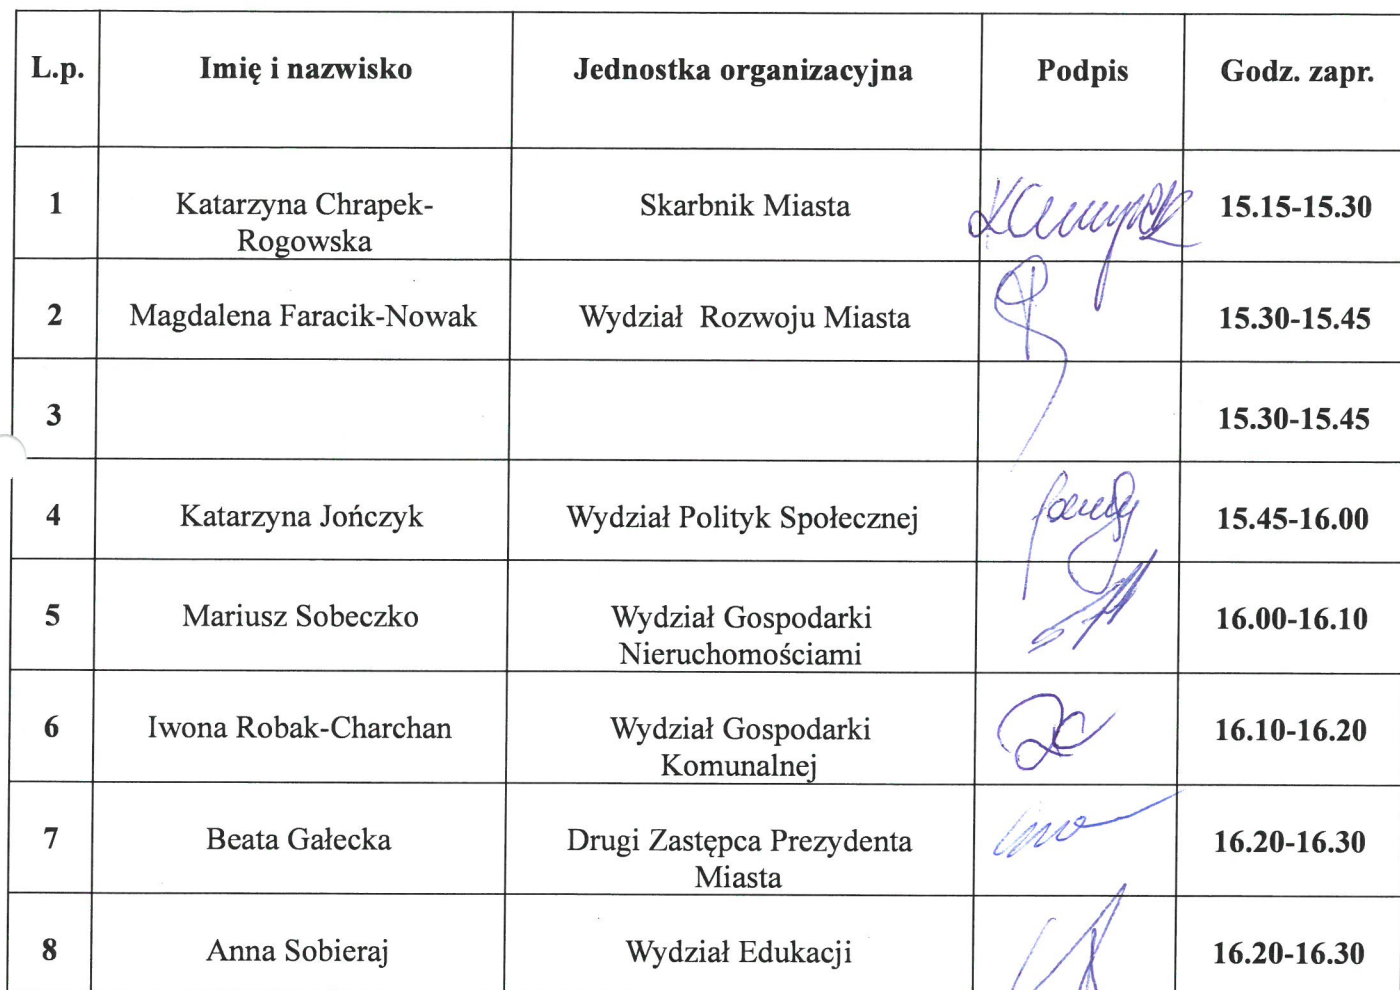 L.p. Imię i nazwisko Jednostka organizacyjna Podpis Godz. zapr.
1 Katarzyna Chrapek- Skarbnik Miasta 15.15-15.30
Rogowska
2 Magdalena Faracik-Nowak Wydział Rozwoju Miasta 15.30-15.45
3 15.30-15.45
4 Katarzyna Jończyk Wydział Polityk Społecznej 15.45-16.00
5 Mariusz Sobeczko Wydział Gospodarki 16.00-16.10
Nieruchomościami
6 Iwona Robak-Charchan Wydział Gospodarki 16.10-16.20
Komunalnej
7 Beata Gałecka Drugi Zastępca Prezydenta 16.20-16.30
Miasta
8 Anna Sobieraj Wydział Edukacji 16.20-16.30